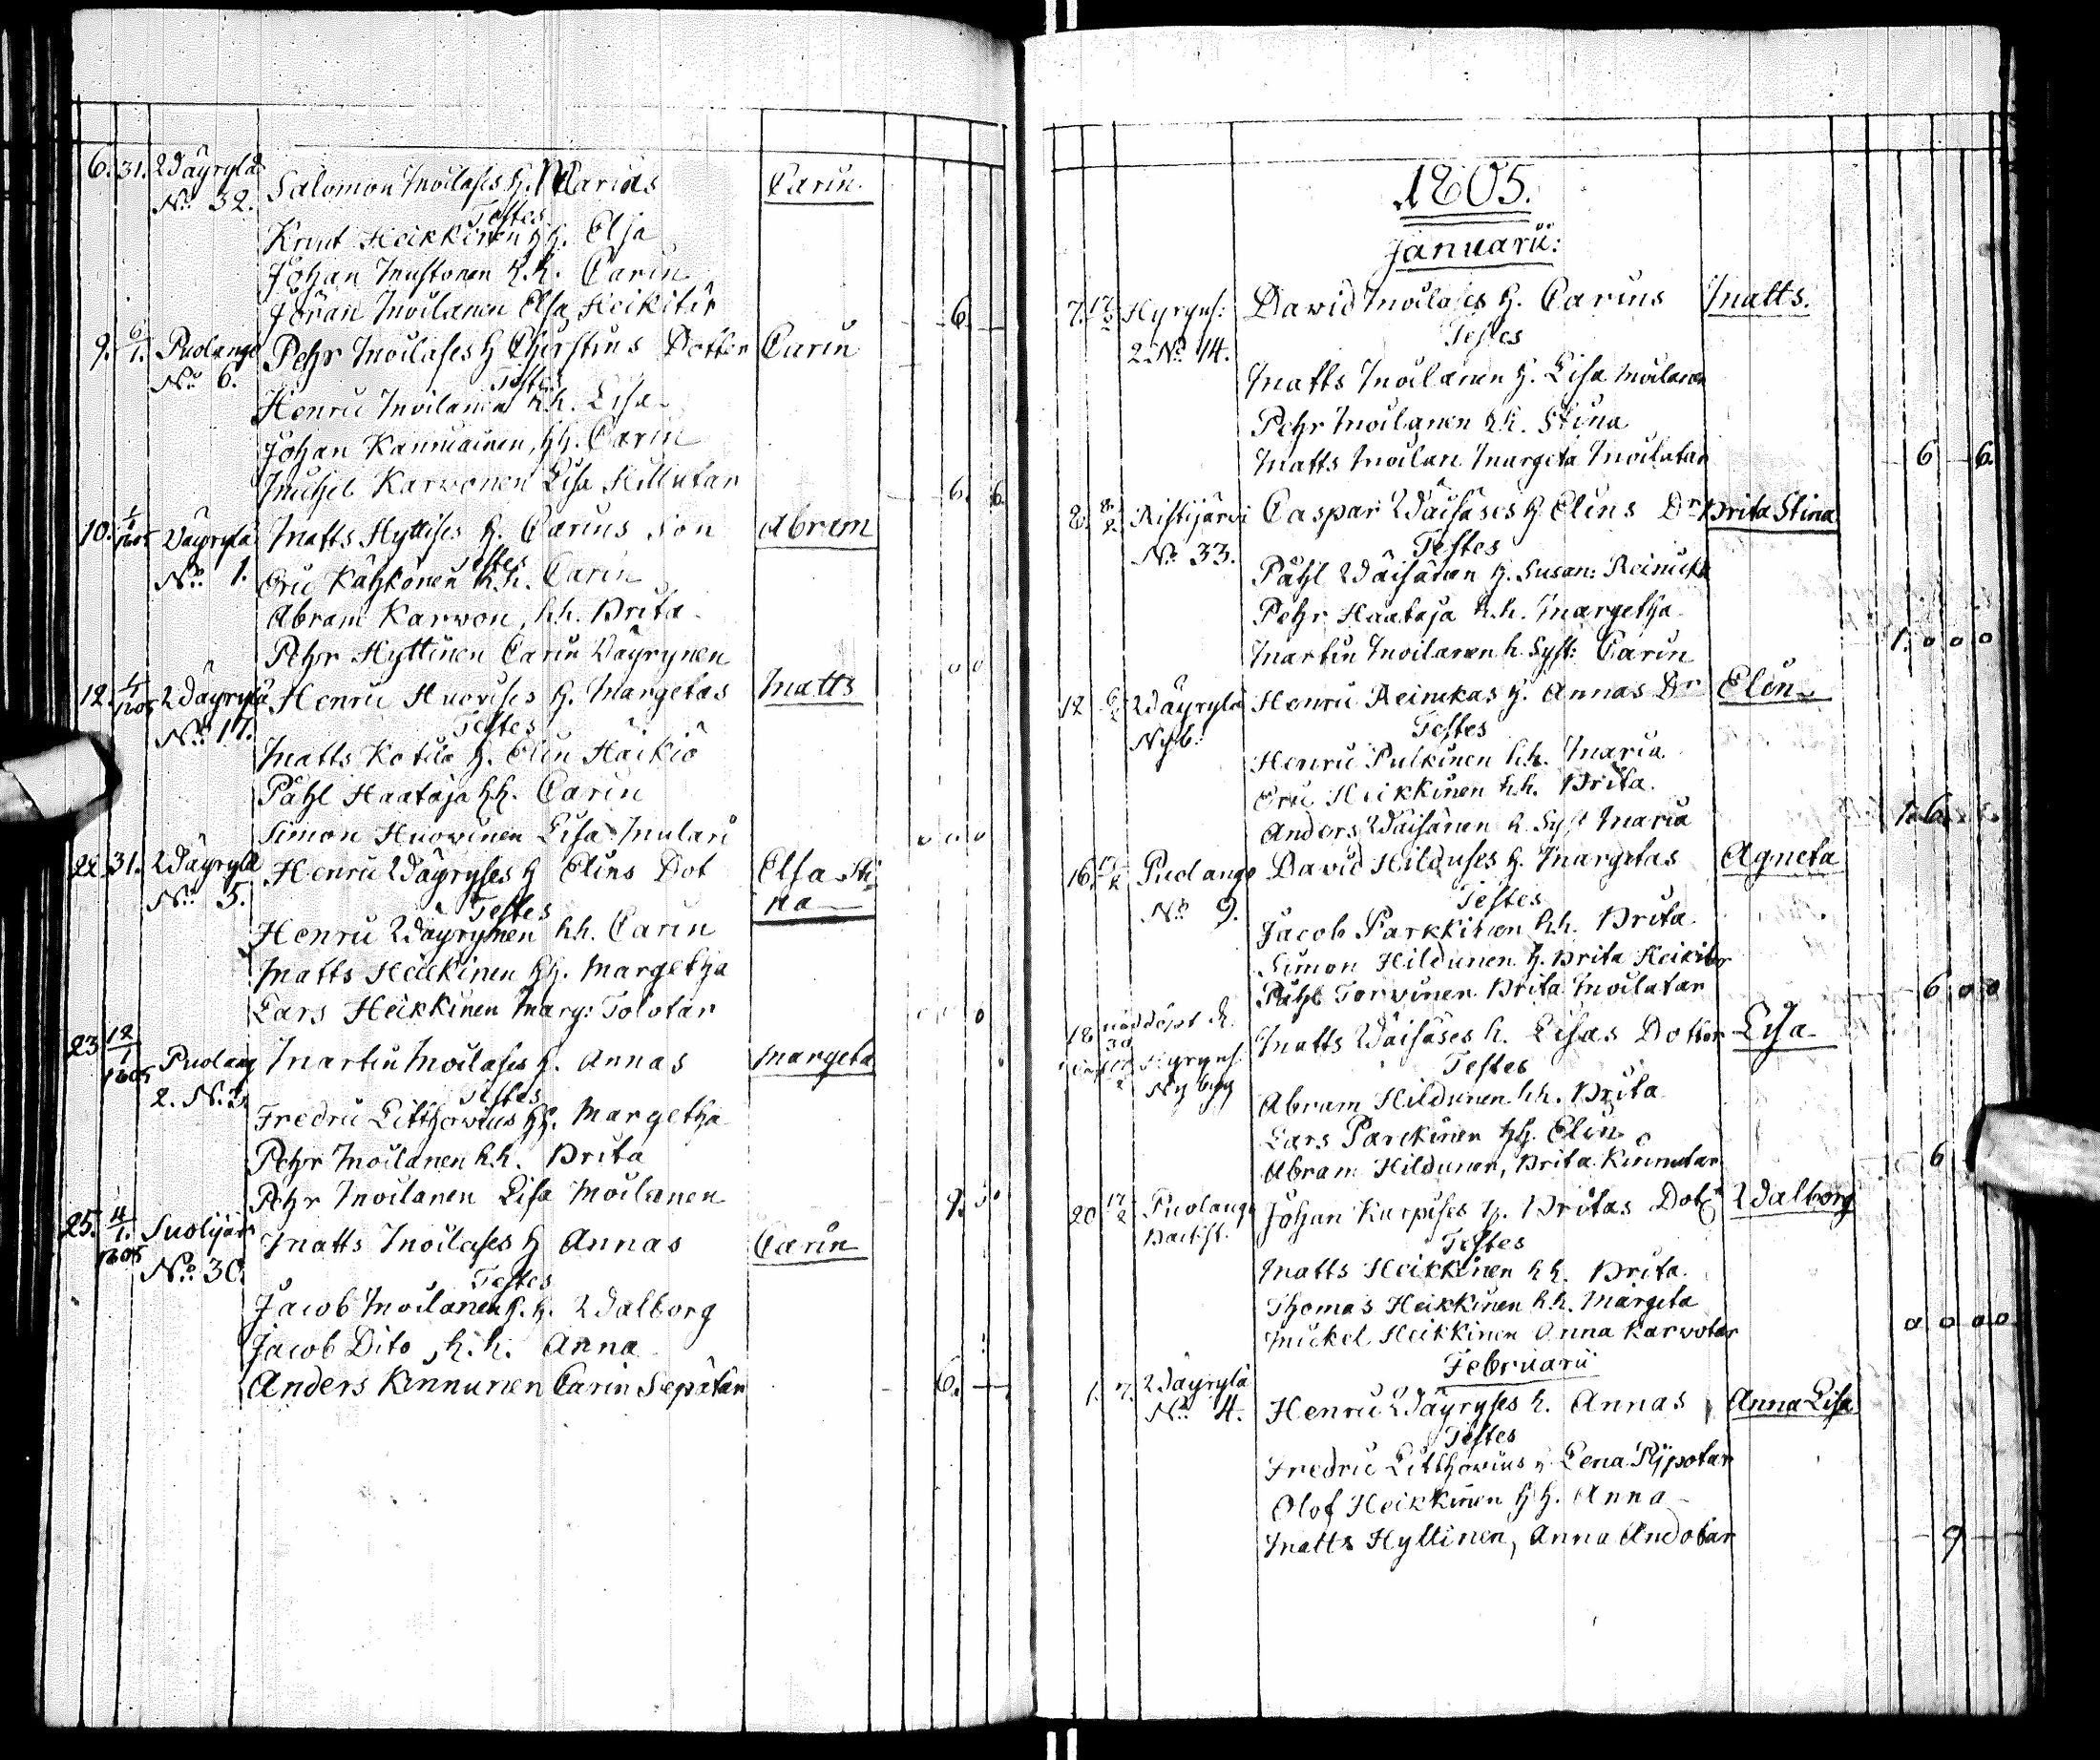 6. 31. Wäyrylä Salomon Moilases h. Marias Carin.
No. 32. Testes
Knut Heikkinen hh. Elsa
Johan Mustonen h.h. Carin
Jöran Moilanen Elsa Heikitär 6.
9. 6/1. Puolango Pehr Moilases h Chirstins Dotter Carin
No. 6. Testes
Henric Moilanen hh. Lisa
Johan Kannuainen, hh. Carin
Michel Karvonen Lisa Hillutar 6. 6
10. 1/1 1805 Wäyrylä Matts Hyttises h. Carins Son Abram
No. 1. Testes
Eric Kähkönen h.h. Carin
Abram Karvon, hh. Brita
Pehr Hyttinen Carin Väyrynen 0 0
12. 4/1 1805 Wäyrylä Henric Huovises h. Margetas Matts
No. 17. Testes
Matts Kotila h. Elin Häikiö
Påhl Haataja hh. Carin
Simon Huovinen Lisa Mulari 0 0 0
22 31. Wäyrylä Henric Wäyryses h Elins Dot Elsa Sti
No. 5. Testes na
Henric Wäyrynen hh. Carin
Matts Heickinen hh. Margetha
Lars Heikkinen Marg: Tolotar 0
23 12/1 1805 Puolang Martin Moilases h. Annas Margeta
2. No. Testes
Fredric Litthovius hh. Margetha
Pehr Moilanen h.h. Brita
Pehr Moilanen Lisa Moilanen 9.
25. 4/1. 1805 Suolijär Matts Moilases h Annas Carin
No. 30. Testes
Jacob Moilanen h.h. Walborg
Jacob Dito, h.h. Anna
Anders Kinnunen Carin Sepätär 6.
1805.
Januarii:
7. 17/2 Hyryns: David Moilases h. Carins Matts.
2 No. 14. Testes
Matts Moilanen h. Lisa Moilanen
Pehr Moilanen hh. Stina
Matts Moilan Margeta Moilatar 6 6.
8. 8/2 Ristijärvi Caspar Wäisäses h Elins Dr Brita Stina
No. 33. Testes
Påhl Wäisänen h. Susan: Reinicka
Pehr Haataja h.h. Margetha
Martin Moilanen h. Syst: Carin 1. 0 0 0
12 Wäyrylä Henric Reinickas h. Annas Dr Elin
Nyb: Testes
Henric Pulkinen hh. Maria
Eric Heikkinen h.h. Brita.
Anders Wäisänen h. Syst Maria 1. 6.
16. Puolango David Hilduses h. Margetas Agneta
No. 9. Testes
Jacob Parkkinen hh. Brita
Simon Hildunen h. Brita Heikitär
Påhl Torvinen Brita Moilatar 6 0 0
18 nöddöpt d. 30 Matts Wäisäses h. Lisas Dotter Lisa
Hyryns. Testes
Nybyg
Abram Hildunen hh. Brita
Lars Parckinen hh. Elin
Abram Hildunen, Brita Kinnutar 6
20 17/2 Puolango Johan Karpises h. Britas Dotr Walborg
Backst. Testes
Matts Heikkinen hh. Brita.
Thomas Heikkinen h.h. Margeta
Mickel Heikkinen Anna Karvotar 0 0 0 0
Februarii
1. 7. Wäyrylä
No. 4. Henric Wäyryses h. Annas Anna Lisa
Testes
Fredric Litthovius h Lena Pijpotar
Olof Heikkinen hh. Anna
Matts Hyttinen, Anna Andotar 9